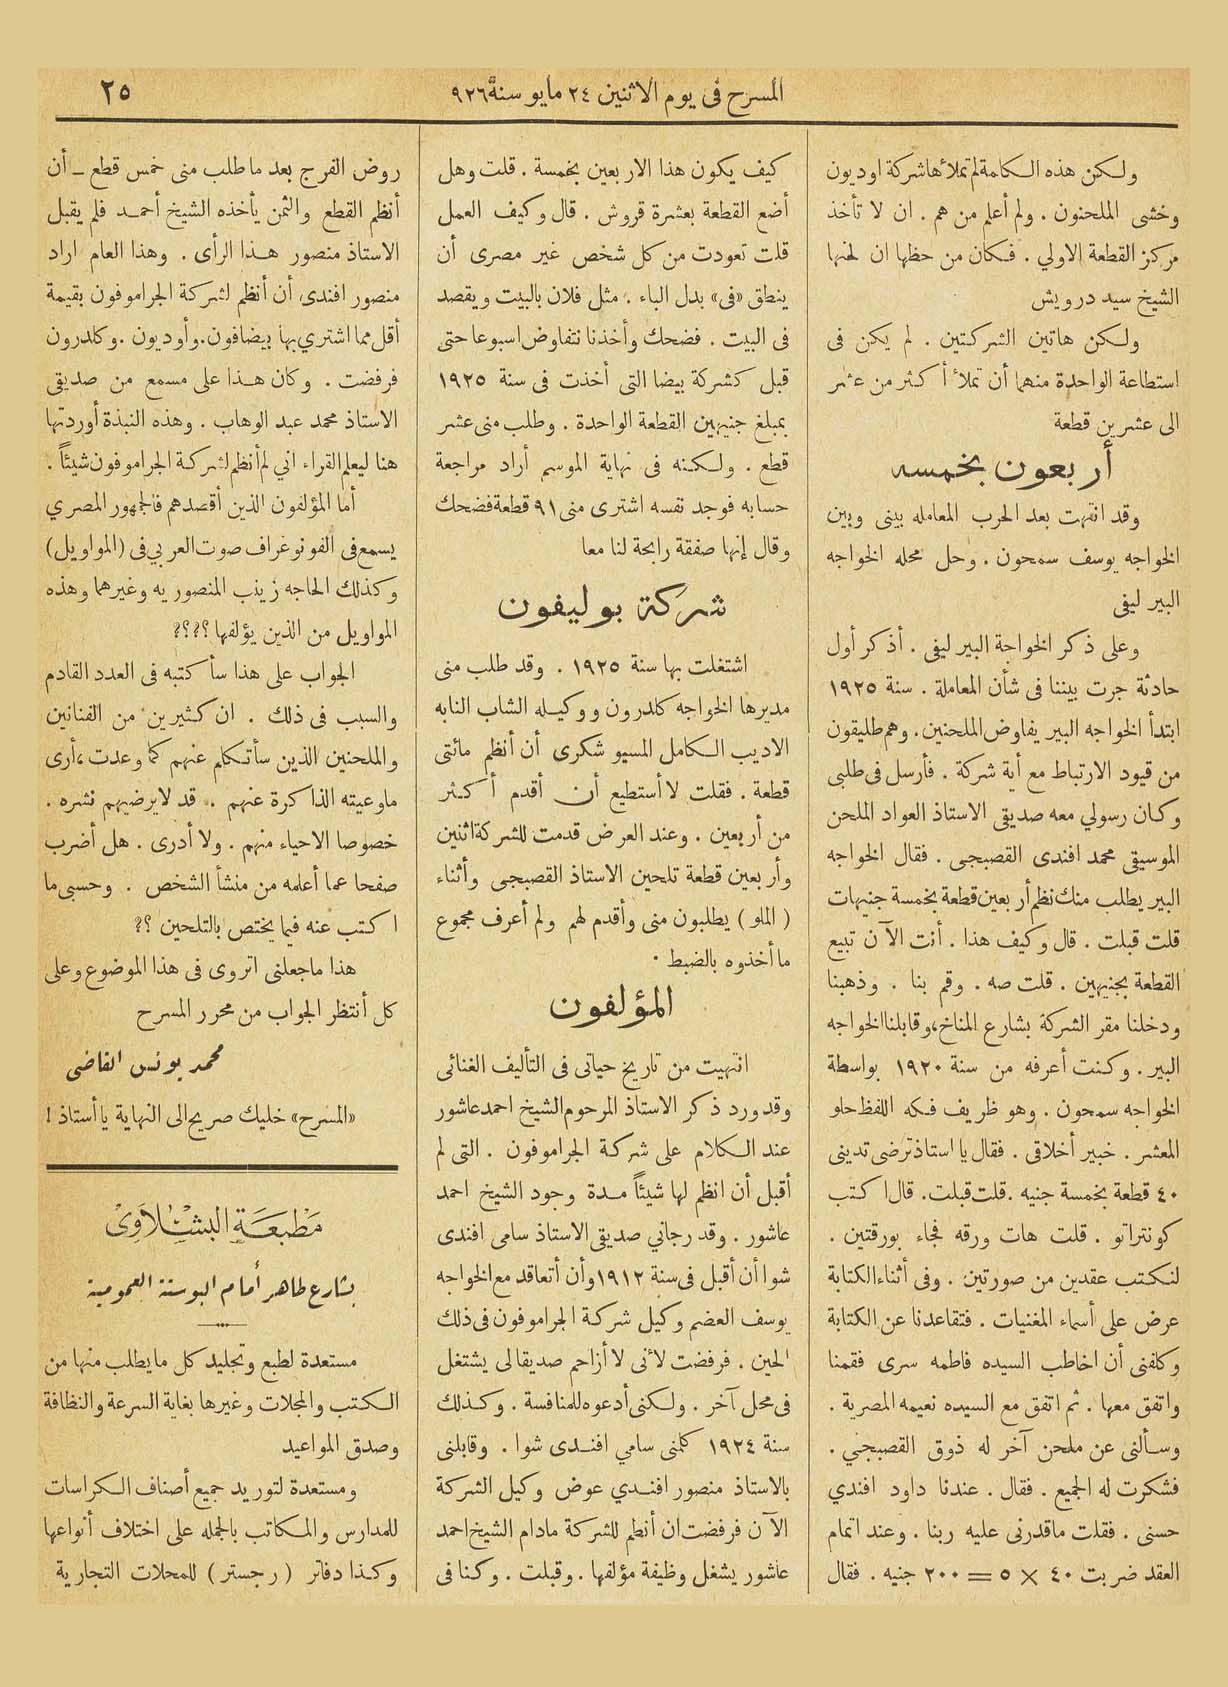 المسرح فى يوم الاثنين ٢٤ مايو سنة ٩٢٦
٢٥
ولكن هذه الكلمة لم تملأها شركة اوديون
وخشى الملحنون . ولم أعلم من هم . ان لا تأخذ
مركز القطعة الاولي . فكان من حظها ان لحنها
الشيخ سيد درويش
ولكن هاتين الشركتين . لم يكن فى
استطاعة الواحدة منهما أن تملأ أكثر من عشر
الى عشرين قطعة
أربعون بخمسه
وقد انتهت بعد الحرب المعامله بينى وبين
الخواجه يوسف سمحون . وحل محله الخواجه
البير ليفى
وعلى ذكر الخواجة البير ليفى . أذكر أول
حادثة جرت بيننا فى شأن المعاملة . سنة ١٩٢٥
ابتدأ الخواجه البير يفاوض الملحنين . وهم طليقون
من قيود الارتباط مع أية شركة . فأرسل فى طلبى
وكان رسولي معه صديقى الاستاذ العواد الملحن
الموسيقى محمد افندى القصبجى . فقال الخواجه
البير يطلب منك نظم أربعين قطعة بخمسة جنيهات
قلت قبلت . قال وكيف هذا . أنت الآن تبيع
القطعة بجنيهين . قلت صه . وقم بنا . وذهبنا
ودخلنا مقر الشركة بشارع المناخ ، وقابلنا الخواجه
البير . وكنت أعرفه من سنة ١٩٢٠ بواسطة
الخواجه سمحون . وهو ظريف فكه اللفظ حلو
المعشر . خبير أخلاقى . فقال يا استاذ ترضى تدينى
٤٠ قطعة بخمسة جنيه . قلت قبلت . قال اكتب
كونتراتو . قلت هات ورقه فجاء بورقتين .
لنكتب عقدين من صورتين . وفى أثناء الكتابة
عرض على أسماء المغنيات . فتقاعدنا عن الكتابة
وكلفنى أن اخاطب السيده فاطمه سرى فقمنا
واتفق معها . ثم اتفق مع السيده نعيمه المصرية .
وسألنى عن ملحن آخر له ذوق القصبجي .
فشكرت له الجميع . فقال . عندنا داود افندي
حسنى . فقلت ماقدرنى عليه ربنا . وعند اتمام
العقد ضربت ٤٠ × ٥ = ٢٠٠ جنيه . فقال
كيف يكون هذا الاربعين بخمسة . قلت وهل
أضع القطعة بعشرة قروش . قال وكيف العمل
قلت تعودت من كل شخص غير مصرى أن
ينطق «فى» بدل الباء . مثل فلان بالبيت ويقصد
فى البيت . فضحك وأخذنا نتفاوض اسبوعا حتى
قبل كشركة بيضا التى أخذت فى سنة ١٩٢٥
بمبلغ جنيهين القطعة الواحدة . وطلب منى عشر
قطع . ولكنه فى نهاية الموسم أراد مراجعة
حسابه فوجد نفسه اشترى منى ٩١ قطعة فضحك
وقال إنها صفقة رابحة لنا معا
شركة بوليفون
اشتغلت بها سنة ١٩٢٥ . وقد طلب منى
مديرها الخواجه كلدرون ووكيله الشاب النابه
الاديب الكامل المسيو شكرى أن أنظم مائتى
قطعة . فقلت لا أستطيع أن أقدم أكثر
من أربعين . وعند العرض قدمت للشركة اثنين
وأربعين قطعة تلحين الاستاذ القصبجى وأثناء
( الملو ) يطلبون منى وأقدم لهم ولم أعرف مجموع
ما أخذوه بالضبط .
المؤلفون
انتهيت من تاريخ حياتى فى التأليف الغنائى
وقد ورد ذكر الاستاذ المرحوم الشيخ احمد عاشور
عند الكلام على شركة الجراموفون . التى لم
أقبل أن انظم لها شيئاً مدة وجود الشيخ احمد
عاشور . وقد رجاني صديقى الاستاذ سامى افندى
شوا أن أقبل فى سنة ١٩١٢ وأن أتعاقد مع الخواجه
يوسف العضم وكيل شركة الجراموفون فى ذلك
الحين . فرفضت لأنى لا أزاحم صديقا لى يشتغل
فى محل آخر . ولكنى أدعوه للمنافسة . وكذلك
سنة ١٩٢٤ كلمنى سامي افندى شوا . وقابلنى
بالاستاذ منصور افندي عوض وكيل الشركة
الآن فرفضت ان أنظم للشركة مادام الشيخ احمد
عاشور يشغل وظيفة مؤلفها . وقبلت . وكنا فى
روض الفرج بعد ما طلب منى خمس قطع ــ أن
أنظم القطع والثمن يأخذه الشيخ أحمد فلم يقبل
الاستاذ منصور هذا الرأى . وهذا العام اراد
منصور افندى أن أنظم لشركة الجراموفون بقيمة
أقل مما اشتري بها بيضافون . وأوديون . وكلدرون
فرفضت . وكان هذا على مسمع من صديقى
الاستاذ محمد عبد الوهاب . وهذه النبذة أوردتها
هنا ليعلم القراء اني لم أنظم لشركة الجراموفون شيئاً .
أما المؤلفون الذين أقصدهم فالجمهور المصري
يسمع فى الفونوغراف صوت العربي فى (المواويل)
وكذلك الحاجه زينب المنصوريه وغيرهما وهذه
المواويل من الذين يؤلفها ؟؟؟؟
الجواب على هذا سأكتبه فى العدد القادم
والسبب فى ذلك . ان كثيرين من الفنانين
والملحنين الذين سأتكلم عنهم كما وعدت ، أرى
ماوعيته الذاكرة عنهم .. قد لا يرضيهم نشره .
خصوصا الاحياء منهم . ولا أدرى . هل أضرب
صفحا عما أعلمه من منشأ الشخص . وحسبى ما
اكتب عنه فيما يختص بالتلحين ؟؟
هذا ماجعلنى اتروى فى هذا الموضوع وعلى
كل أنتظر الجواب من محرر المسرح
محمد يونس القاضى
«المسرح» خليك صريح الى النهاية يا أستاذ !
مَطْبَعَة البشْلَاوِىْ
بشارع طاهر أمام البوستة العمومية
مستعدة لطبع وتجليد كل ما يطلب منها من
الكتب والمجلات وغيرها بغاية السرعة والنظافة
وصدق المواعيد
ومستعدة لتوريد جميع أصناف الكراسات
للمدارس والمكاتب بالجمله على اختلاف أنواعها
وكذا دفاتر ( رجستر ) للمحلات التجارية